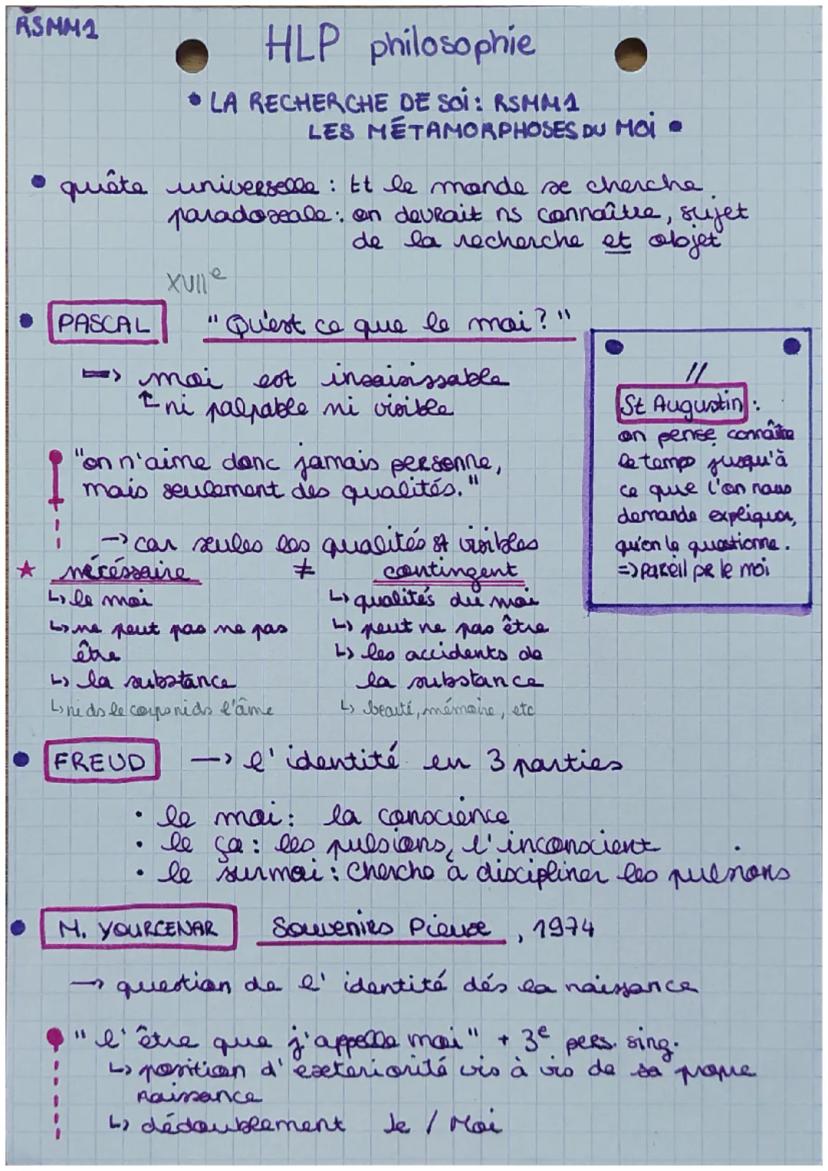 RSMM1
HLP philosophie
• LA RECHERCHE DE SOI : RSMM1
LES MÉTAMORPHOSES DU MOI •
• quête universelle : tt le monde se cherche
paradoxale : on devrait ns connaître, sujet
de la recherche et objet
XVIIe
• PASCAL "Qu'est ce que le moi ?"
=> moi est insaisissable
↑ ni palpable ni visible
"on n'aime donc jamais personne,
mais seulement des qualités."
→ car seules les qualités st visibles
* nécessaire ≠ contingent
↳ le moi ↳ qualités du moi
↳ ne peut pas ne pas ↳ peut ne pas être
être ↳ les accidents de
↳ la substance la substance
↳ ni ds le corps ni ds l'âme ↳ beauté, mémoire, etc
//
St Augustin :
on pense connaître
le temps jusqu'à
ce que l'on nous
demande expliquer,
qu'on le questionne.
=> pareil pr le moi
• FREUD → l'identité en 3 parties
• le moi : la conscience
• le ça : les pulsions, l'inconscient
• le surmoi : cherche à discipliner les pulsions
• M. YOURCENAR Souvenirs Pieux, 1974
→ question de l'identité dés la naissance
"l'être que j'appelle moi" + 3e pers. sing.
↳ position d'exteriorité vis à vis de sa propre
naissance
↳ dédoublement Je / Moi